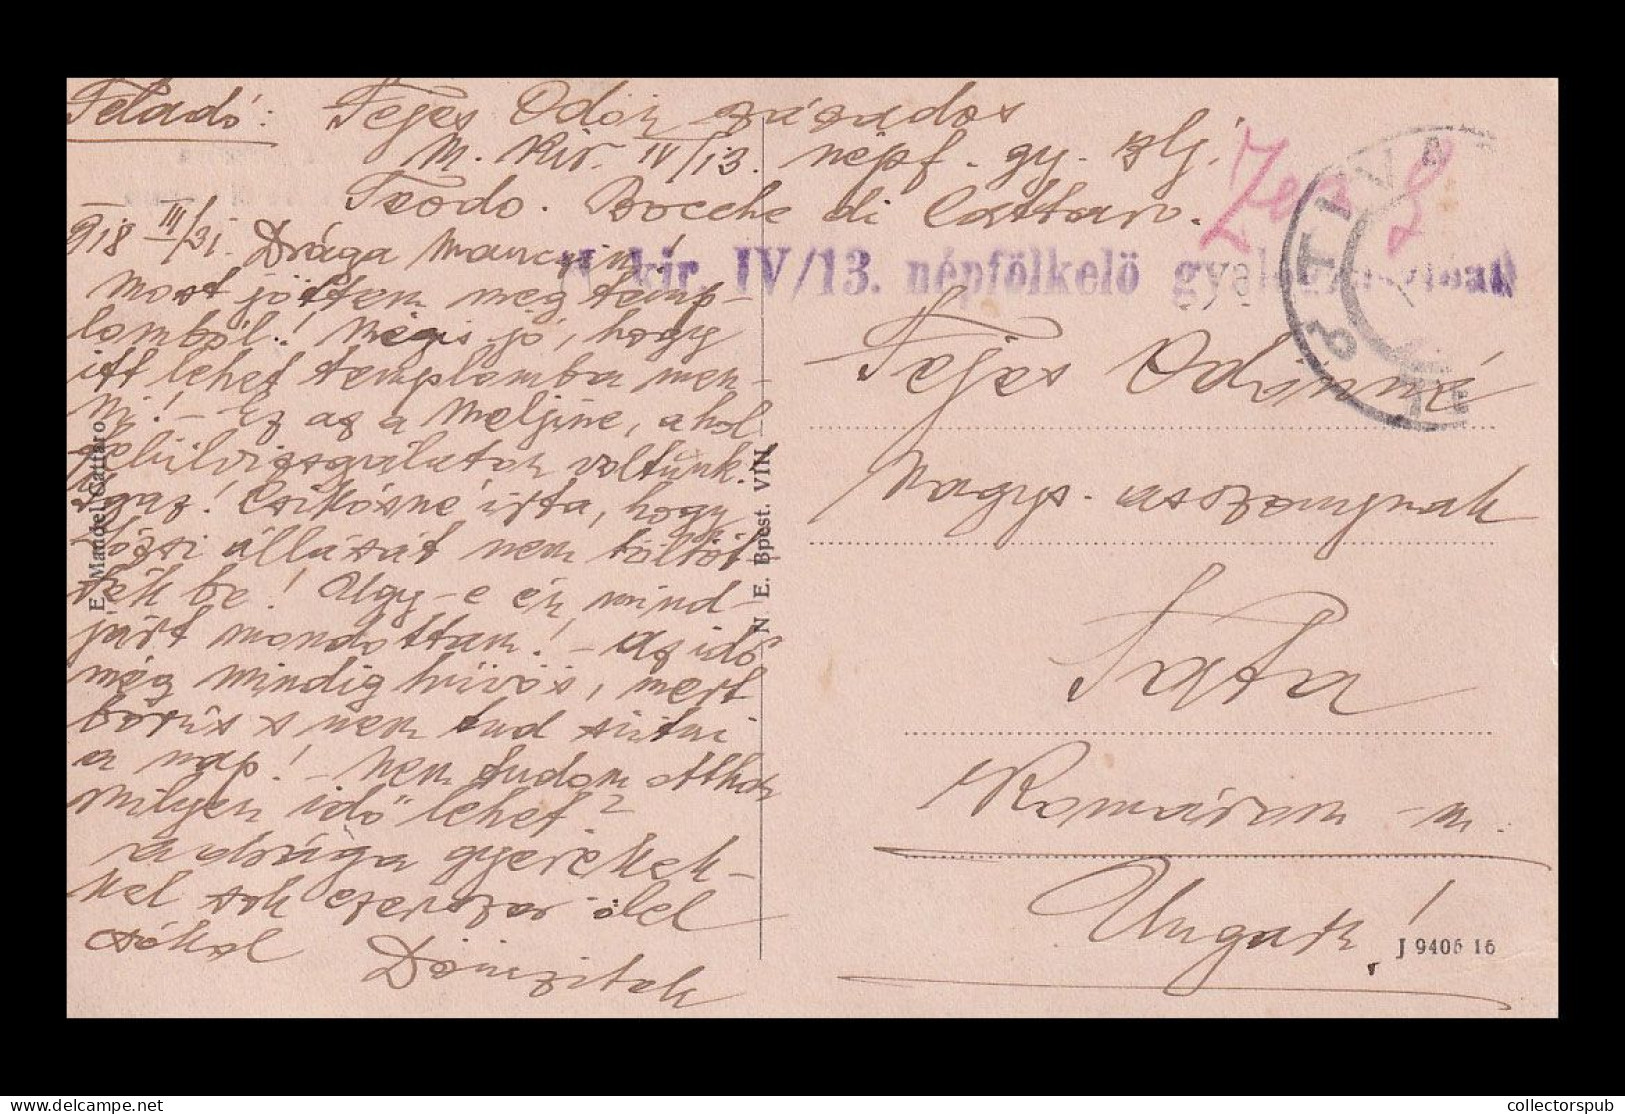 Feladó: Fejes Ödön százados
M. kir. IV/13. népf. gy. zlj.
Teodo. Bocche di Cattaro.
918 III/31. Drága Mancim!
Most jöttem meg temp-
lomból! Mégis jó, hogy
itt lehet templomba men-
ni! - Ez az a Meljine, ahol
felülvizsgálaton voltunk.
Igaz! Csikósné írta, hogy
Józsi állását nem töltöt-
ték be! Ugy-e én mind-
járt mondottam! - Az idő
még mindig hűvös, mert
borús s nem tud sütni
a nap! - Nem tudom otthon
milyen idő lehet?
A drága gyerekek-
kel sok ezerszer ölel
csókol
M. kir. IV/13. népfölkelő
Fejes Ödönné
Nagys. asszonynak
Tata
Komárom-m.
Ungarn!
E. Mandel Cattaro
N. E. Bpest. VIII
J 9406 16
collectorspub